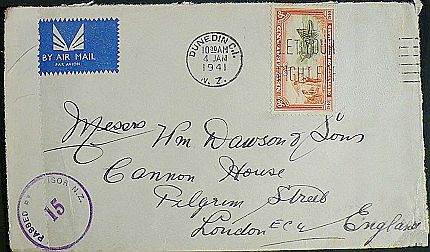 BY AIR MAIL
PAR AVION
DUNEDIN C.H.
10 30 AM
4 JAN
1941
N. Z.
NEW ZEALAND
Messrs Wm Dawson & Sons
Cannon House
Pilgrim Street
London E C 4 England
PASSED BY
ISOR N.Z.
15